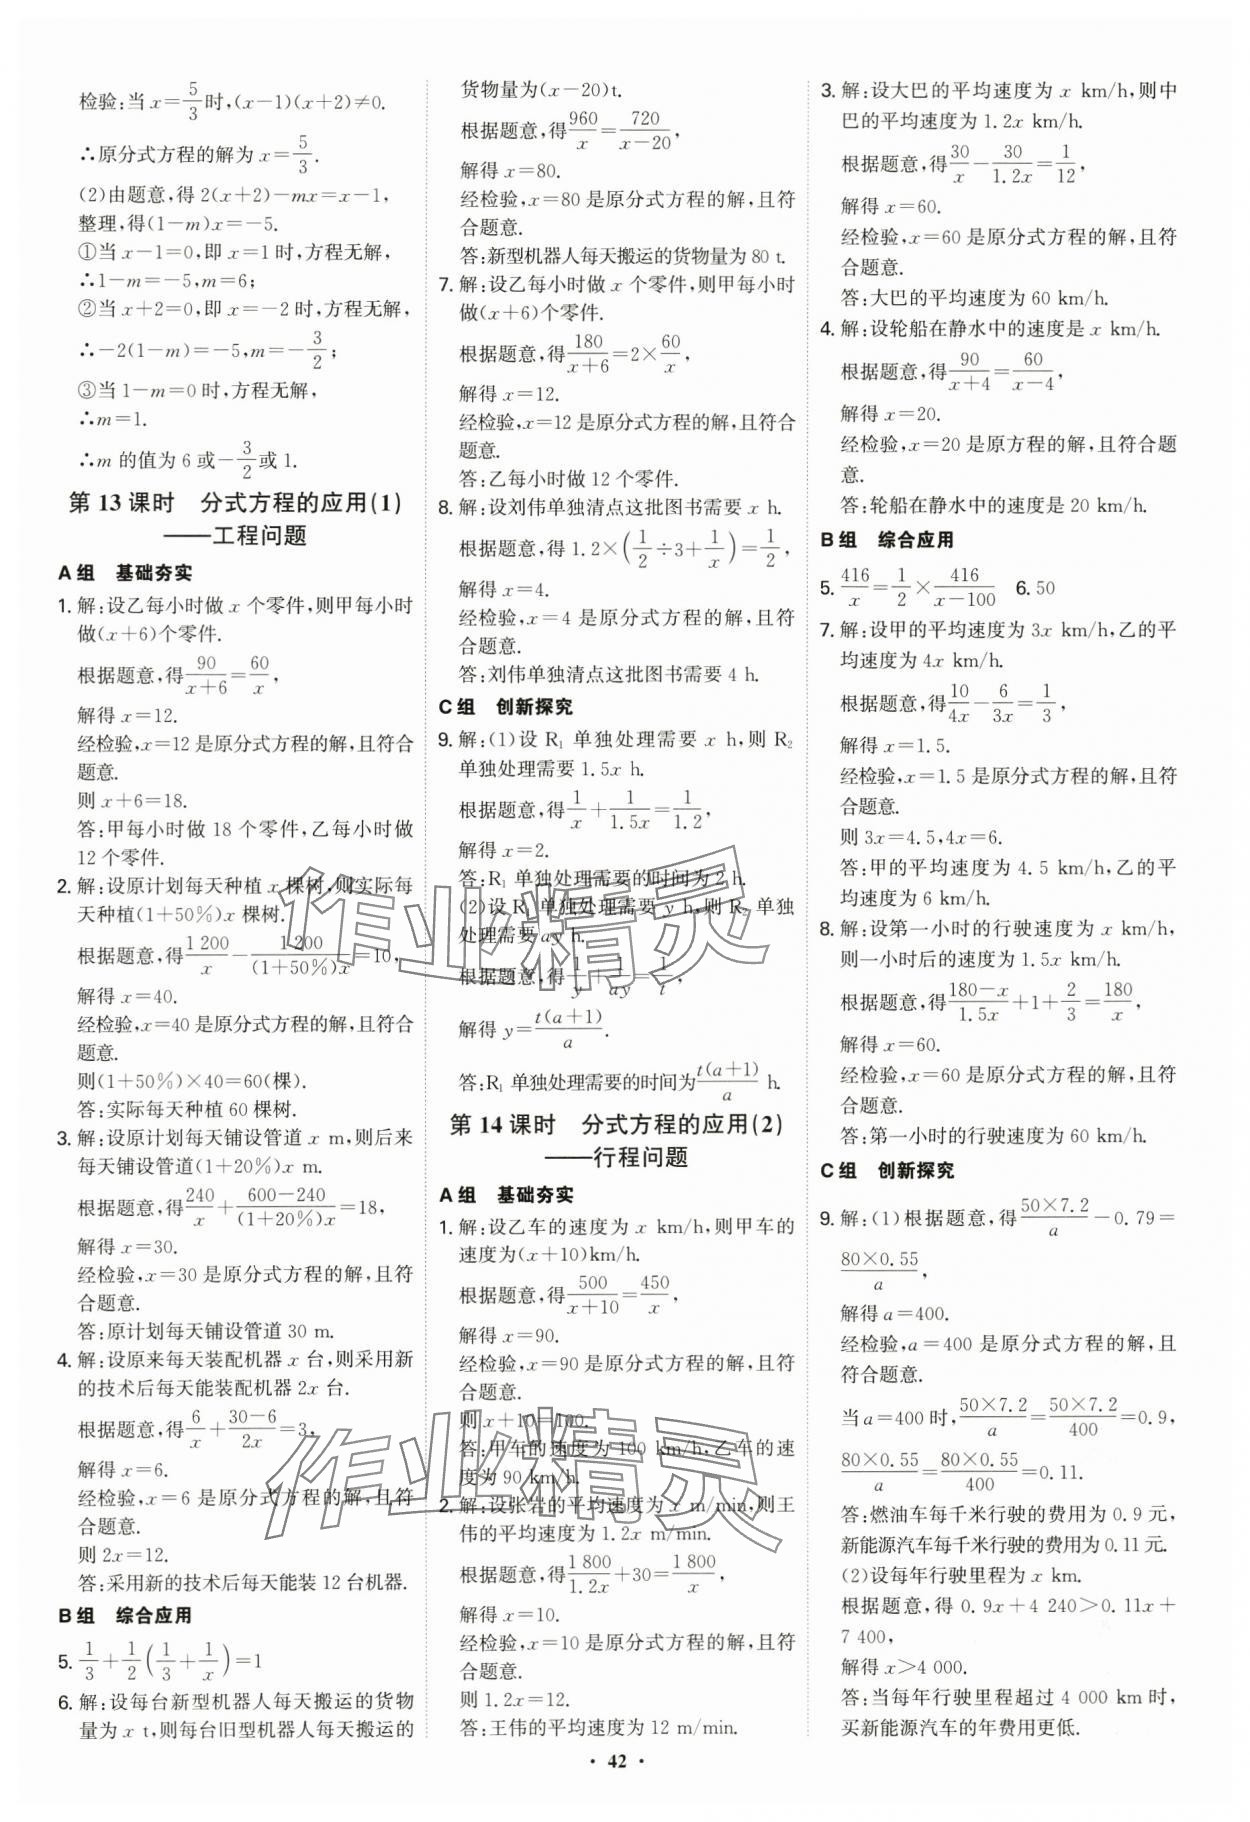 检验:当 x=5/3时,(x-1)(x+2)≠0.
∴原分式方程的解为 x=5/3.
(2)由题意,得 2(x+2)-mx=x-1,
整理,得(1-m)x=-5.
①当 x-1=0,即 x=1 时,方程无解,
∴1-m=-5,m=6;
②当 x+2=0,即 x=-2 时,方程无解,
∴-2(1-m)=-5,m=-3/2;
③当 1-m=0 时,方程无解,
∴m=1.
∴m 的值为 6 或-3/2或 1.
第 13 课时 分式方程的应用(1)
——工程问题
A 组 基础夯实
1. 解:设乙每小时做 x 个零件,则甲每小时
做(x+6)个零件.
根据题意,得90/(x+6)=60/x,
解得 x=12.
经检验,x=12 是原分式方程的解,且符合
题意.
则 x+6=18.
答:甲每小时做 18 个零件,乙每小时做
12 个零件.
2. 解:设原计划每天种植 x 棵树,则实际每
天种植(1+50%)x 棵树.
根据题意,得1 200/x-1 200/((1+50%)x)=10,
解得 x=40.
经检验,x=40 是原分式方程的解,且符合
题意.
则(1+50%)×40=60(棵).
答:实际每天种植 60 棵树.
3. 解:设原计划每天铺设管道 x m,则后来
每天铺设管道(1+20%)x m.
根据题意,得240/x+(600-240)/((1+20%)x)=18,
解得 x=30.
经检验,x=30 是原分式方程的解,且符
合题意.
答:原计划每天铺设管道 30 m.
4. 解:设原来每天装配机器 x 台,则采用新
的技术后每天能装配机器 2x 台.
根据题意,得6/x+(30-6)/2x=3,
解得 x=6.
经检验,x=6 是原分式方程的解,且符
合题意.
则 2x=12.
答:采用新的技术后每天能装 12 台机器.
B 组 综合应用
5. 1/3+1/2(1/3+1/x)=1
6. 解:设每台新型机器人每天搬运的货物
量为 x t,则每台旧型机器人每天搬运的
货物量为(x-20)t.
根据题意,得960/x=720/(x-20),
解得 x=80.
经检验,x=80 是原分式方程的解,且符
合题意.
答:新型机器人每天搬运的货物量为 80 t.
7. 解:设乙每小时做 x 个零件,则甲每小时
做(x+6)个零件.
根据题意,得180/(x+6)=2×60/x,
解得 x=12.
经检验,x=12 是原分式方程的解,且符合
题意.
答:乙每小时做 12 个零件.
8. 解:设刘伟单独清点这批图书需要 x h.
根据题意,得 1.2×(1/2÷3+1/x)=1/2,
解得 x=4.
经检验,x=4 是原分式方程的解,且符
合题意.
答:刘伟单独清点这批图书需要 4 h.
C 组 创新探究
9. 解:(1)设 R₁ 单独处理需要 x h,则 R₂
单独处理需要 1.5x h.
根据题意,得1/x+1/1.5x=1/1.2,
解得 x=2.
答:R₁ 单独处理需要的时间为 2 h.
(2)设 R₁ 单独处理需要 y h,则 R₂ 单独
处理需要 ay h.
根据题意,得1/y+1/ay=1/t,
解得 y=t(a+1)/a.
答:R₁ 单独处理需要的时间为t(a+1)/a h.
第 14 课时 分式方程的应用(2)
——行程问题
A 组 基础夯实
1. 解:设乙车的速度为 x km/h,则甲车的
速度为(x+10)km/h.
根据题意,得500/(x+10)=450/x,
解得 x=90.
经检验,x=90 是原分式方程的解,且符
合题意.
则 x+10=100.
答:甲车的速度为 100 km/h,乙车的速
度为 90 km/h.
2. 解:设张岩的平均速度为 x m/min,则王
伟的平均速度为 1.2x m/min.
根据题意,得1 800/1.2x+30=1 800/x,
解得 x=10.
经检验,x=10 是原分式方程的解,且符
合题意.
则 1.2x=12.
答:王伟的平均速度为 12 m/min.
3. 解:设大巴的平均速度为 x km/h,则中
巴的平均速度为 1.2x km/h.
根据题意,得30/x-30/1.2x=1/12,
解得 x=60.
经检验,x=60 是原分式方程的解,且符
合题意.
答:大巴的平均速度为 60 km/h.
4. 解:设轮船在静水中的速度是 x km/h.
根据题意,得90/(x+4)=60/(x-4),
解得 x=20.
经检验,x=20 是原方程的解,且符合题
意.
答:轮船在静水中的速度是 20 km/h.
B 组 综合应用
5. 416/x=1/2×416/(x-100) 6. 50
7. 解:设甲的平均速度为 3x km/h,乙的平
均速度为 4x km/h.
根据题意,得10/4x-6/3x=1/3,
解得 x=1.5.
经检验,x=1.5 是原分式方程的解,且符
合题意.
则 3x=4.5,4x=6.
答:甲的平均速度为 4.5 km/h,乙的平
均速度为 6 km/h.
8. 解:设第一小时的行驶速度为 x km/h,
则一小时后的速度为 1.5x km/h.
根据题意,得(180-x)/1.5x+1+2/3=180/x,
解得 x=60.
经检验,x=60 是原分式方程的解,且符
合题意.
答:第一小时的行驶速度为 60 km/h.
C 组 创新探究
9. 解:(1)根据题意,得50×7.2/a-0.79=
80×0.55/a,
解得 a=400.
经检验,a=400 是原分式方程的解,且
符合题意.
当 a=400 时,50×7.2/a=50×7.2/400=0.9,
80×0.55/a=80×0.55/400=0.11.
答:燃油车每千米行驶的费用为 0.9 元,
新能源汽车每千米行驶的费用为 0.11 元.
(2)设每年行驶里程为 x km.
根据题意,得 0.9x+4 240>0.11x+
7 400,
解得 x>4 000.
答:当每年行驶里程超过 4 000 km 时,
买新能源汽车的年费用更低.
· 42 ·
作业精灵
作业精灵